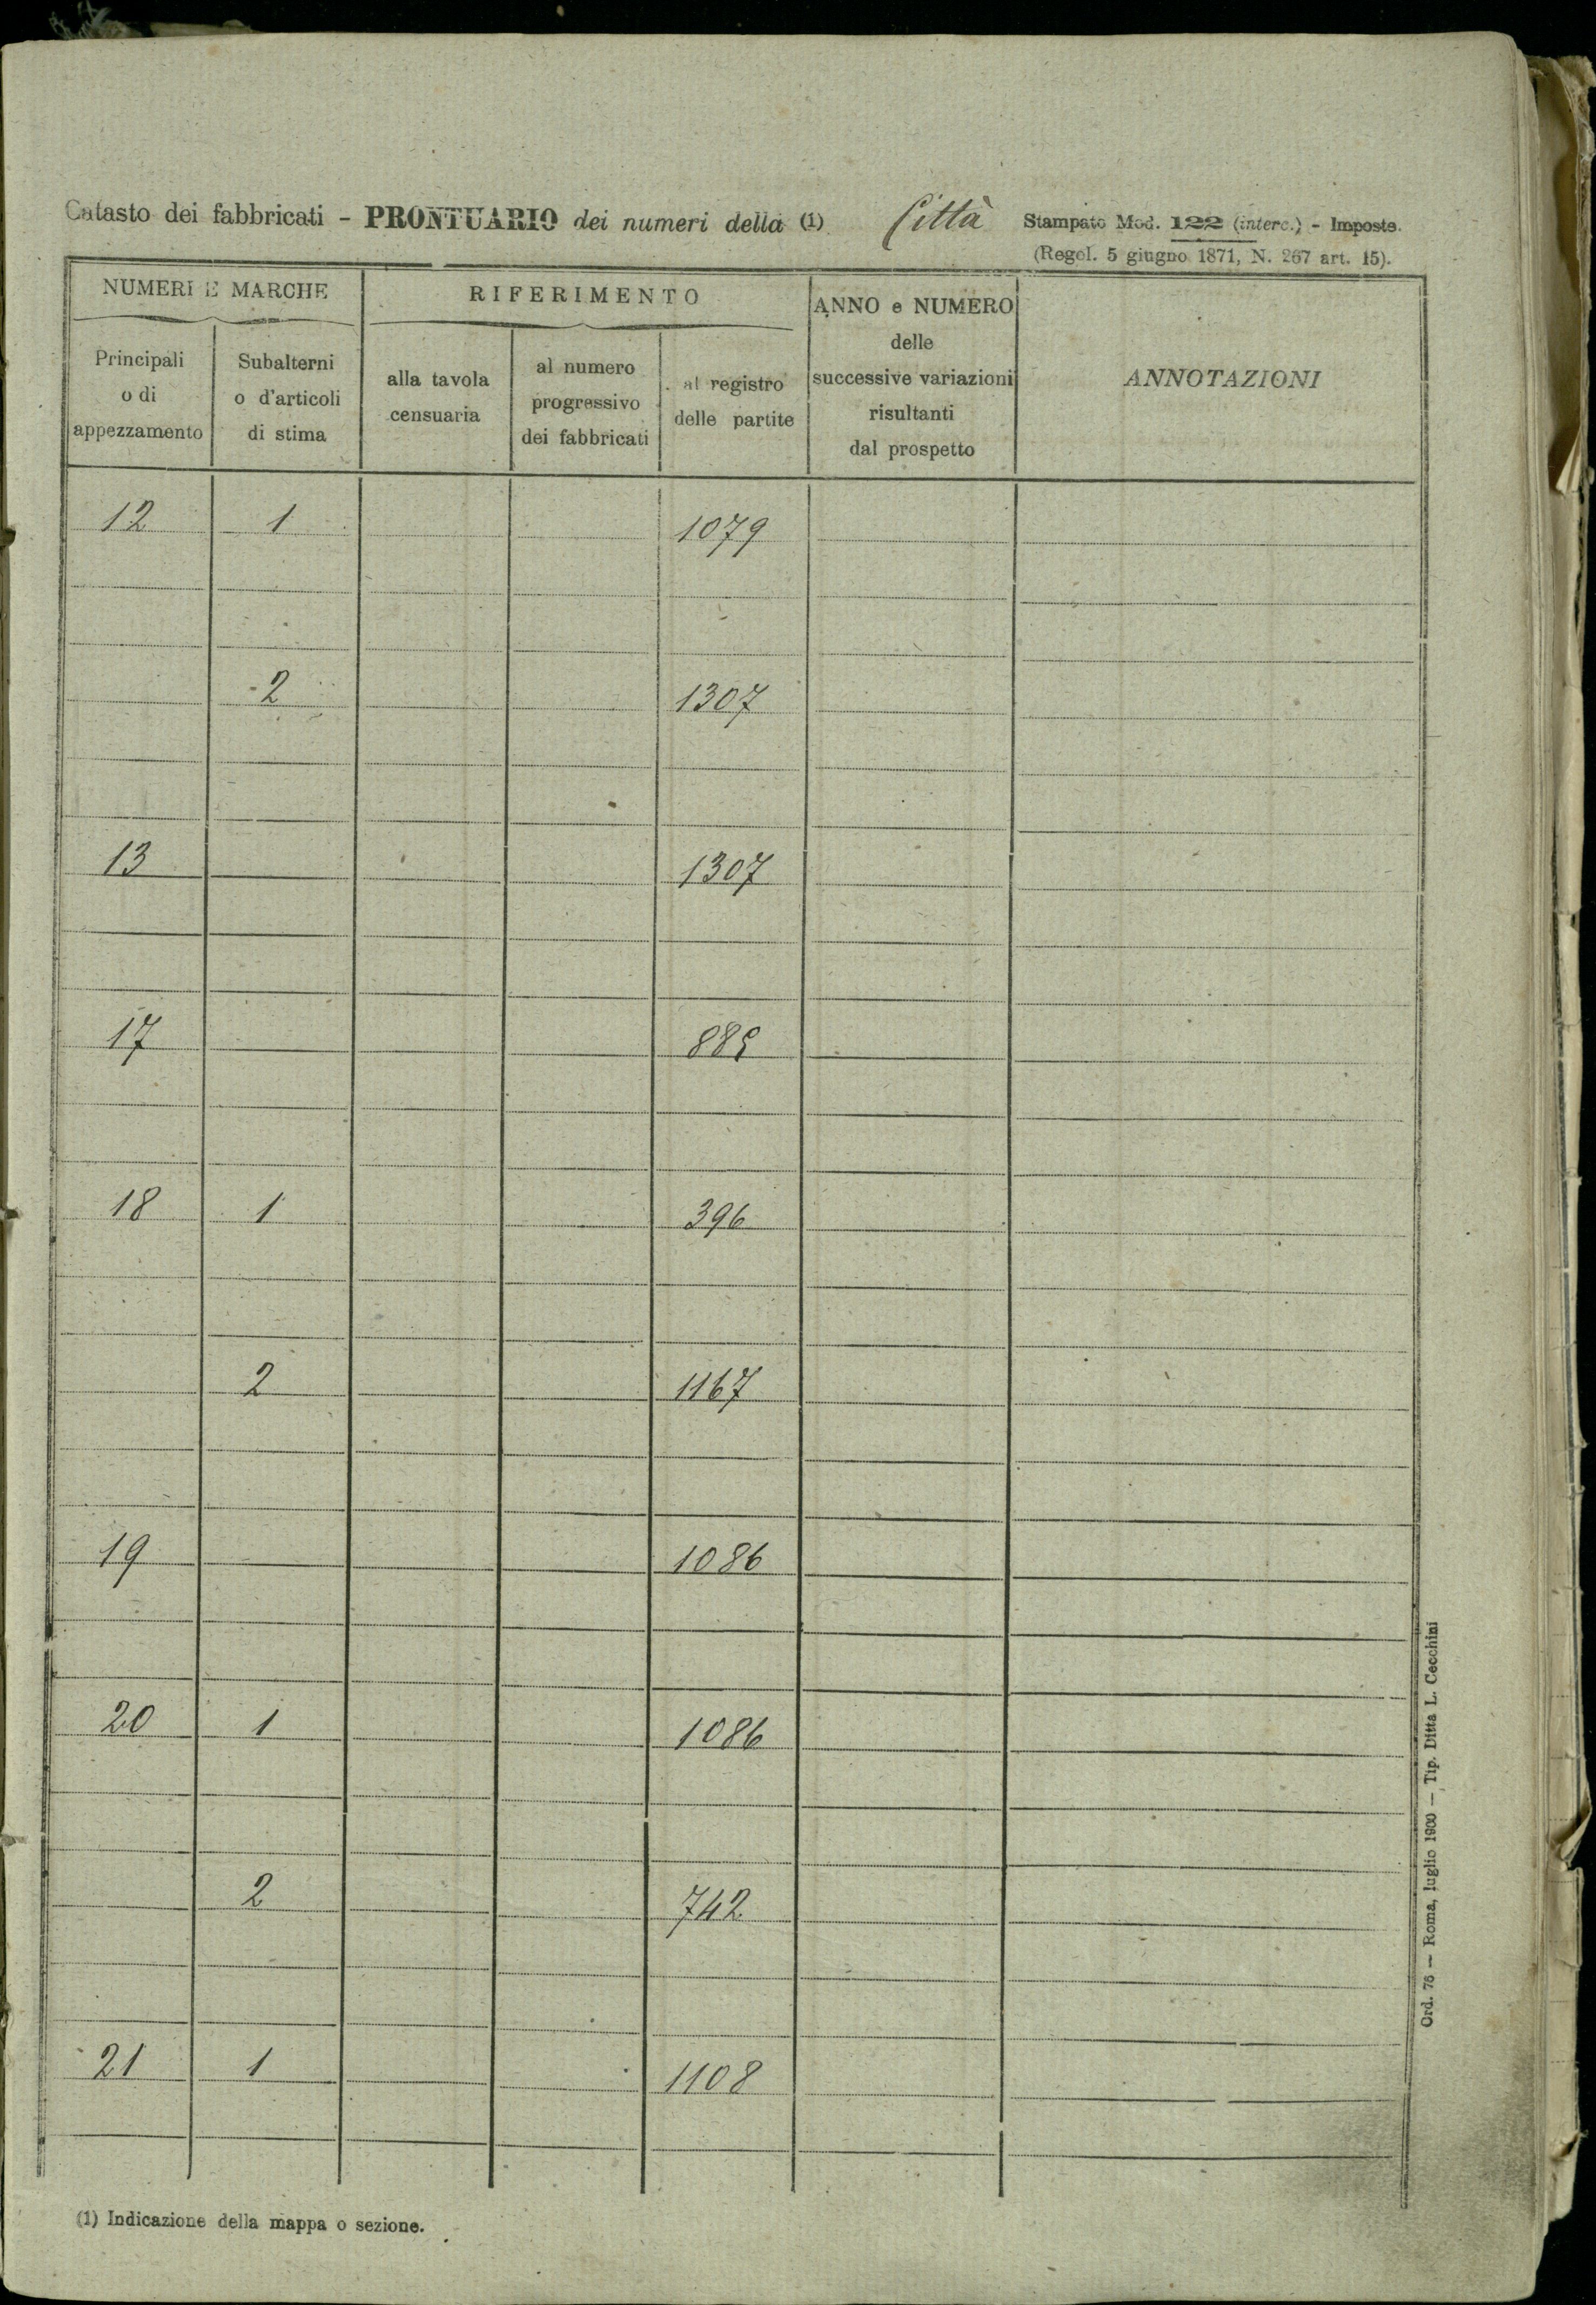 Catasto dei fabbricati - PRONTUARIO dei numeri della (1) Città
Stampato Mod. 122 (interc.) - Imposte.
(Regol. 5 giugno 1871, N. 267 art. 15).
NUMERI E MARCHE
RIFERIMENTO
ANNO e NUMERO
delle
successive variazioni
risultanti
dal prospetto
ANNOTAZIONI
Principali
o di
appezzamento
Subalterni
o d'articoli
di stima
alla tavola
censuaria
al numero
progressivo
dei fabbricati
al registro
delle partite
12 1 1079
2 1307
13 1307
17
18 1 396
2 1167
19 1086
20 1 1086
2 742
21 1 1108
(1) Indicazione della mappa o sezione.
Ord. 76 — Roma, luglio 1900 — Tip. Ditta L. Cecchini